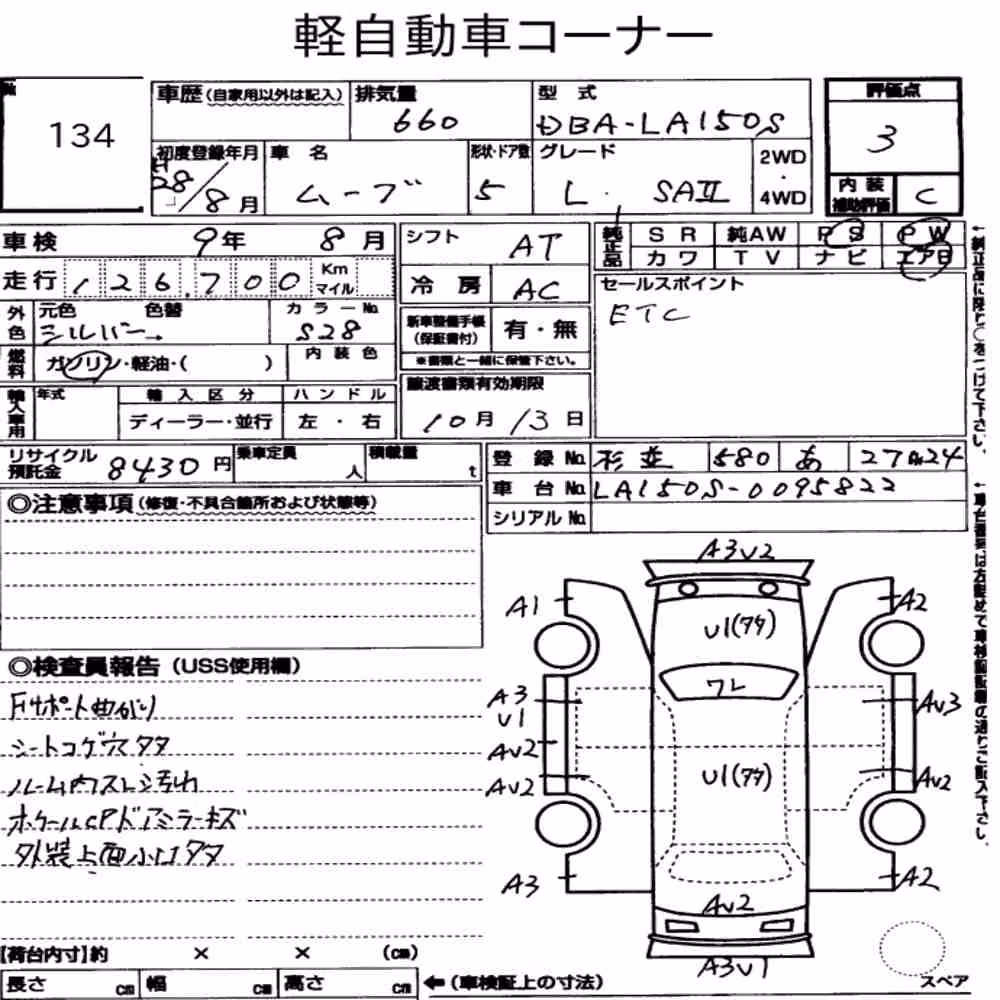 軽自動車コーナー
134
車歴(自家用以外は記入)
排気量
660
型式
DBA-LA150S
評価点
3
初度登録年月
H28/8月
車名
ムーブ
形状・ドア数
5
グレード
L. SAⅡ
2WD・4WD
内装補助評価
C
車検
9年 8月
シフト
AT
純正品
SR 純AW PS PW
カワ TV ナビ エアB
走行 126,700 Km マイル
冷房
AC
セールスポイント
ETC
外色
元色 色替
シルバー→
カラーNo
S28
新車整備手帳(保証書付)
有・無
※書類と一緒に保管下さい。
燃料
ガソリン・軽油・( )
内装色
譲渡書類有効期限
10月13日
輸入車用
年式
輸入区分
ディーラー・並行
ハンドル
左・右
リサイクル預託金
8430円
乗車定員
人
積載量
t
登録No
杉並 580 あ 2724
車台No
LA150S-0095822
シリアルNo
◎注意事項(修復・不具合箇所および状態等)
◎検査員報告(USS使用欄)
Fサポート曲がり
シートコゲ穴タタ
ルーム内スレシ汚れ
外装上面小凹タタ
A3V2
A1
A2
U1(タタ)
ワレ
A3
U1
AV3
AV2
U1(タタ)
AV2
AV2
A3
A2
AV2
A3V1
スペア
【荷台内寸】約 × × (cm)
長さ cm 幅 cm 高さ cm
←(車検証上の寸法)